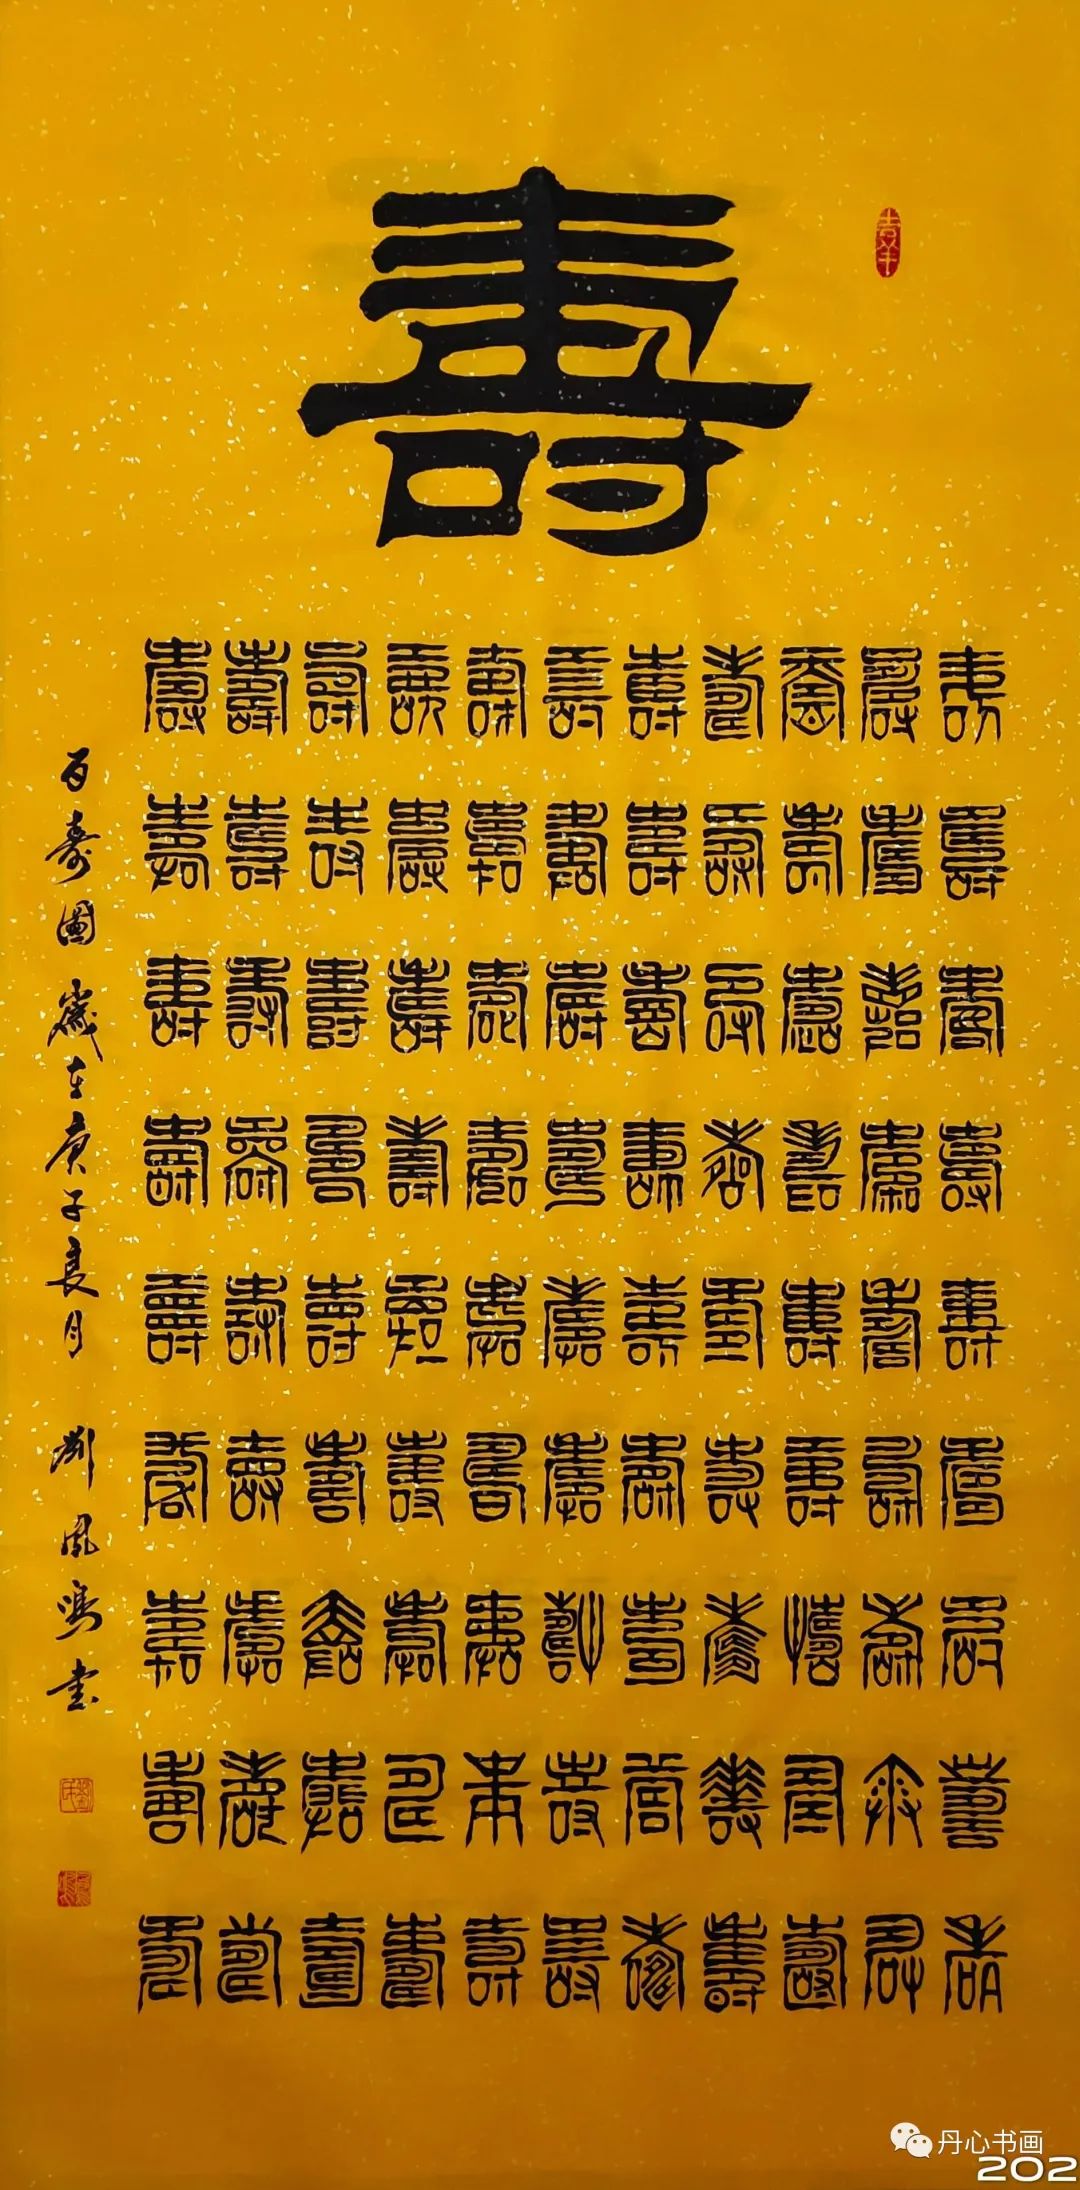 壽
壽壽壽壽壽壽壽壽壽
壽壽壽壽壽壽壽壽壽
壽壽壽壽壽壽壽壽壽
壽壽壽壽壽壽壽壽壽
壽壽壽壽壽壽壽壽壽
壽壽壽壽壽壽壽壽壽
壽壽壽壽壽壽壽壽壽
壽壽壽壽壽壽壽壽壽
壽壽壽壽壽壽壽壽壽
壽壽壽壽壽壽壽壽壽
壽壽壽壽壽壽壽壽壽
百壽圖 歲在庚子月 刘凤书
丹心书画
202